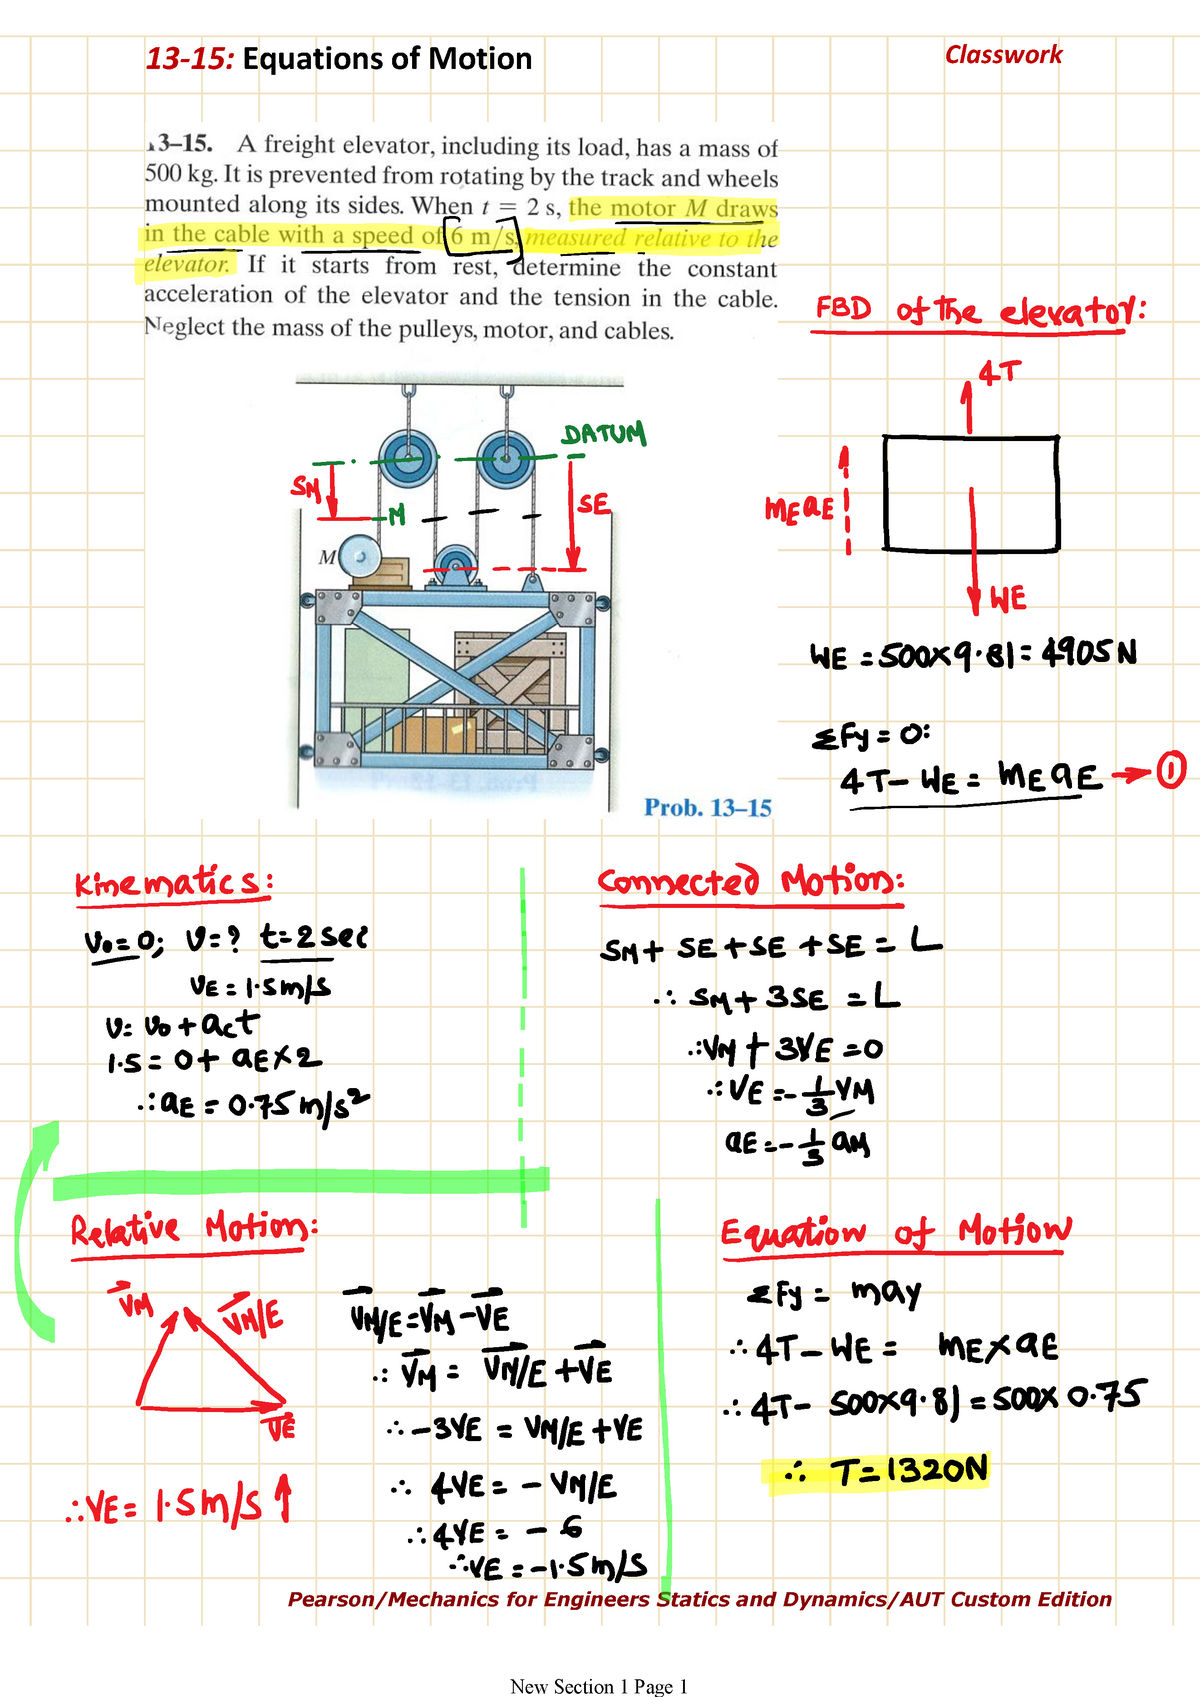 13-15: Equations of Motion
Classwork
13–15. A freight elevator, including its load, has a mass of
500 kg. It is prevented from rotating by the track and wheels
mounted along its sides. When t = 2 s, the motor M draws
in the cable with a speed of 6 m/s, measured relative to the
elevator. If it starts from rest, determine the constant
acceleration of the elevator and the tension in the cable.
Neglect the mass of the pulleys, motor, and cables.
FBD of the elevator:
4T
DATUM
SM
SE
M
M
mEaE
WE
WE = 500×9.81 = 4905N
ΣFy = 0:
4T - WE = mEaE → ①
Prob. 13–15
Kinematics:
V0 = 0; V = ? t = 2 sec
VE = 1.5m/s
V = V0 + act
1.5 = 0 + aE×2
∴ aE = 0.75 m/s²
Connected Motion:
SM + SE + SE + SE = L
∴ SM + 3SE = L
∴ VM + 3VE = 0
∴ VE = - 1/3 VM
aE = - 1/3 aM
Relative Motion:
VM
VM/E
VE
∴ VE = 1.5m/s ↑
VM/E = VM - VE
∴ VM = VM/E + VE
∴ -3VE = VM/E + VE
∴ 4VE = - VM/E
∴ 4VE = - 6
∴ VE = -1.5m/s
Equation of Motion
ΣFy = may
∴ 4T - WE = mE×aE
∴ 4T - 500×9.81 = 500×0.75
∴ T = 1320N
Pearson/Mechanics for Engineers Statics and Dynamics/AUT Custom Edition
New Section 1 Page 1